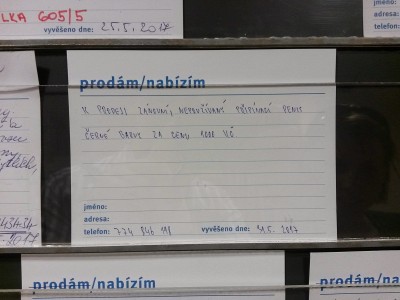 LKA 605/5
vyvěšeno dne: 25.5.2017
jméno:
adresa:
telefon:
prodám/nabízím
K PRODEJI ZÁNOVNÍ, NEPOUŽÍVANÝ PŘIPÍNACÍ PENIS
ČERNÉ BARVY ZA CENU 1000 KČ
jméno:
adresa:
telefon: 774 846 198 vyvěšeno dne: 4.5.2017
prodám/nabízím
prodám/nabízím